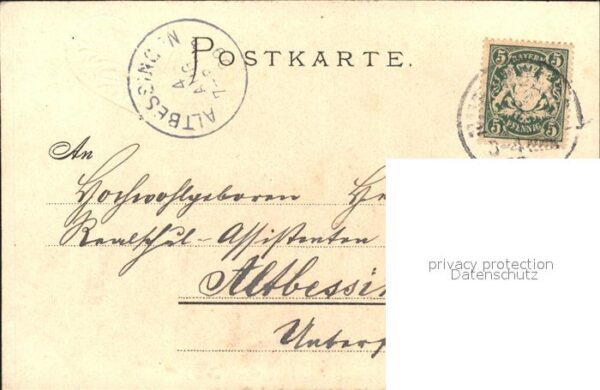 POSTKARTE.
ALTBESSINGEN
5 BAYERN 5
5 PFENNIG 5
An
Hochwohlgeboren He
Realschul-Assistenten
Altbessin
Unterf
privacy protection
Datenschutz